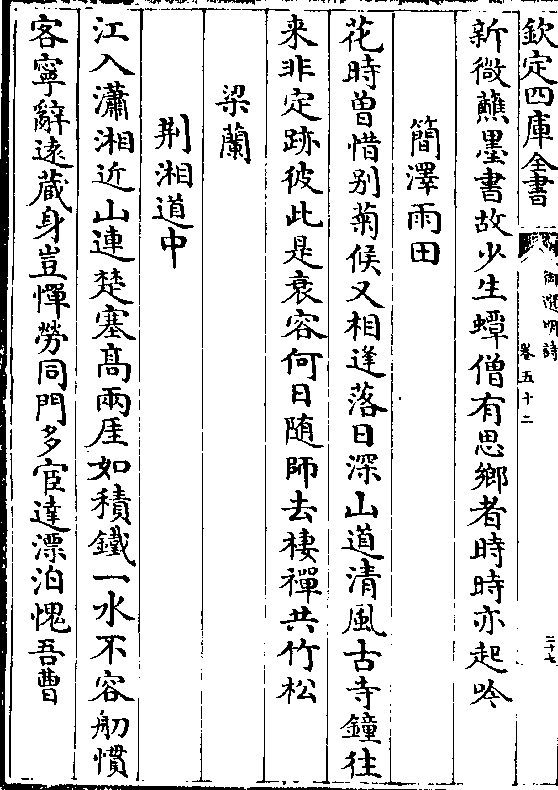 欽定四庫全書
御選明詩
卷五十二
三十七
新微蘸墨書故少生蟫僧有思鄉者時時亦起吟
簡澤雨田
花時曽惜别菊候又相逢落日深山道清風古寺鐘往
来非定跡彼此是衰容何日随師去棲禪共竹松
梁蘭
荆湘道中
江入瀟湘近山連楚塞髙兩厓如積鐵一水不容舠慣
客寜辭逺蔵身豈憚勞同門多宦達漂泊愧吾曹